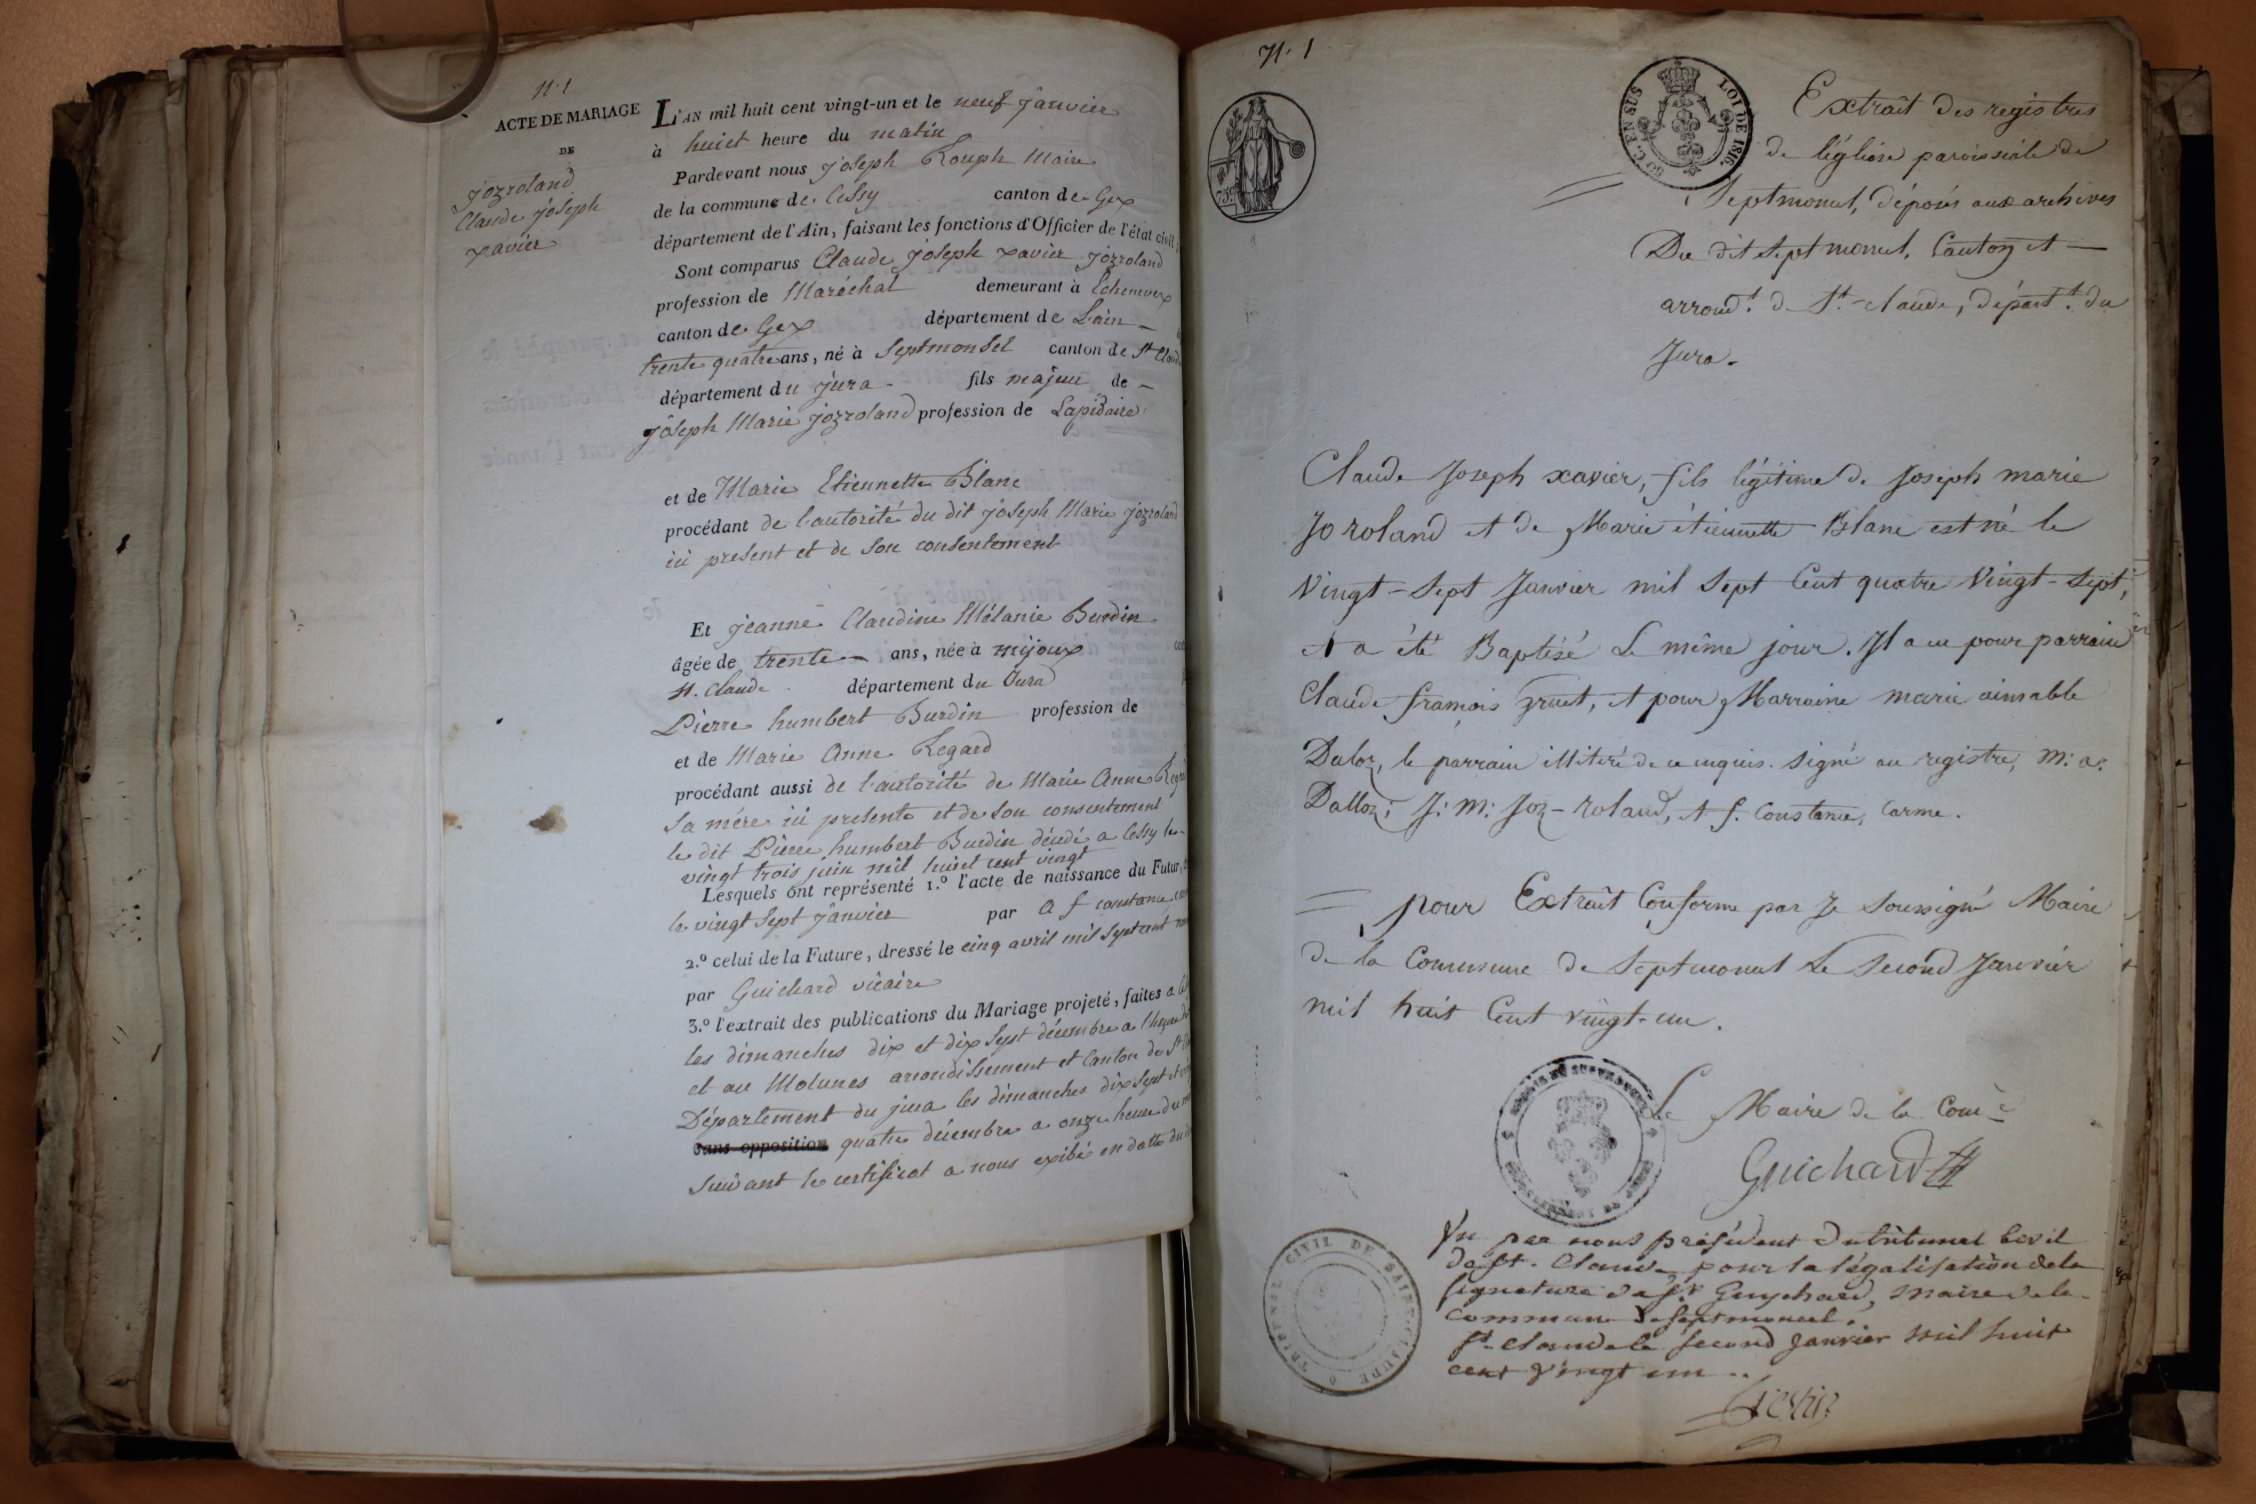 N. 1
ACTE DE MARIAGE
DE
jozroland
Claude joseph
xavier
L'AN mil huit cent vingt-un et le neuf janvier
à huict heure du matin
Pardevant nous joseph Rouph Maire
de la commune de Cessy canton de Gex
département de l'Ain, faisant les fonctions d'Officier de l'état civil
Sont comparus Claude joseph xavier jozroland
profession de Maréchal demeurant à Echenevex
canton de Gex département de L'ain
trente quatre ans, né à Septmonsel canton de St Claude
département du jura fils majeur de
joseph Marie jozroland profession de Lapidaire
et de Marie Etiennette Blanc
procédant de l'autorité du dit joseph Marie jozroland
ici present et de son consentement
Et jeanne Claudine Mélanie Burdin
âgée de trente ans, née à mijoux
St. Claude département du Jura
Pierre humbert Burdin profession de
et de Marie Anne Regard
procédant aussi de l'autorité de Marie Anne
sa mére ici presente et de son consentement
le dit Pierre humbert Burdin décédé a Cessy le
vingt trois juin mil huict cent vingt
Lesquels ont représenté 1.º l'acte de naissance du Futur,
le vingt sept janvier par a f constance
2.º celui de la Future, dressé le cinq avril mil sept cent
par Guichard vicaire
3.º l'extrait des publications du Mariage projeté, faites a
les dimanches dix et dix sept décembre a l'heure
et au Molunes arrondissement et Canton de St
Département du jura les dimanches dix sept et
sans opposition quatre décembre a onze heure du
suivant le certificat a nous exibé en datte du
N. 1
LOI DE 1816.
Extrait des registres
de l'église paroissiale de
Septmoncel, déposés aux archives
Du dit Septmoncel, Canton et
arrond.t de St.-claude, départ.t du
Jura.
Claude Joseph xavier, fils légitime de Joseph marie
Jo roland et de Marie étiennette Blanc est né le
Vingt-Sept Janvier mil Sept Cent quatre Vingt-Sept,
et a été Baptisé Le même jour. Il a eu pour parrain
Claude françois gruet, et pour Marraine marie aimable
Daloz, le parrain illiteré de ce enquis. Signé au registre, M: a:
Dalloz; J: M: Joz-roland, et f. Constance, Carme.
pour Extrait Conforme par Je Soussigné Maire
de la Commune de Septmoncel Le Second Janvier
mil huit Cent vingt-un.
Le Maire de la Come
Guichard
Vu par nous président du tribunal Civil
de St. Claude pour la légalisation de la
signature de Sr. Guychard, maire de la
commune de Septmoncel.
St. Claude le second Janvier mil huit
cent vingt un.
TRIBUNAL CIVIL DE SAINT CLAUDE